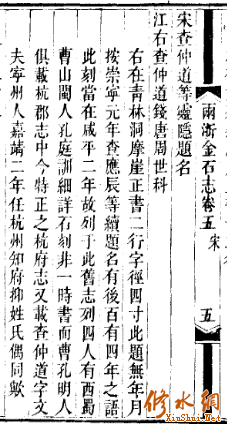 宋查仲道等靈隱題名
江右查仲道錢唐周世科
右在青林洞摩崖正書二行字徑四寸此題無年月
按崇寧元年查應辰等續題名有後百有四年之語
此刻當在咸平二年故列于此舊志列四人有西蜀
曹山閩人孔庭訓細詳石刻非一時書而曹孔明人
俱載杭郡志中今特正之杭府志又載查仲道字文
夫寧州人嘉靖二年任杭州知府抑姓氏偶同歟
兩浙金石志卷五
宋
五
修水網
XiuShui.Net